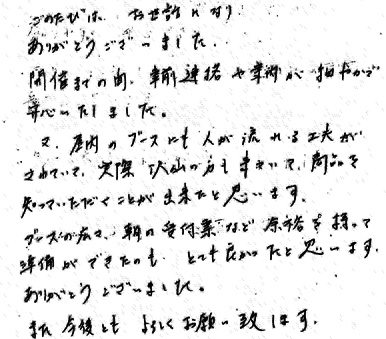 このたびは、お世話になり
ありがとうございました。
開催までの間、事前連絡や案内が細やかで
安心いたしました。
又、屋内のブースにも人が流れる工夫が
されていて、実際沢山の方も来ていて、商品を
知っていただくことが出来たと思います。
ブースの広さ、朝の受付業など余裕を持って
準備ができたのも、とても良かったと思います。
ありがとうございました。
また今後ともよろしくお願い致します。